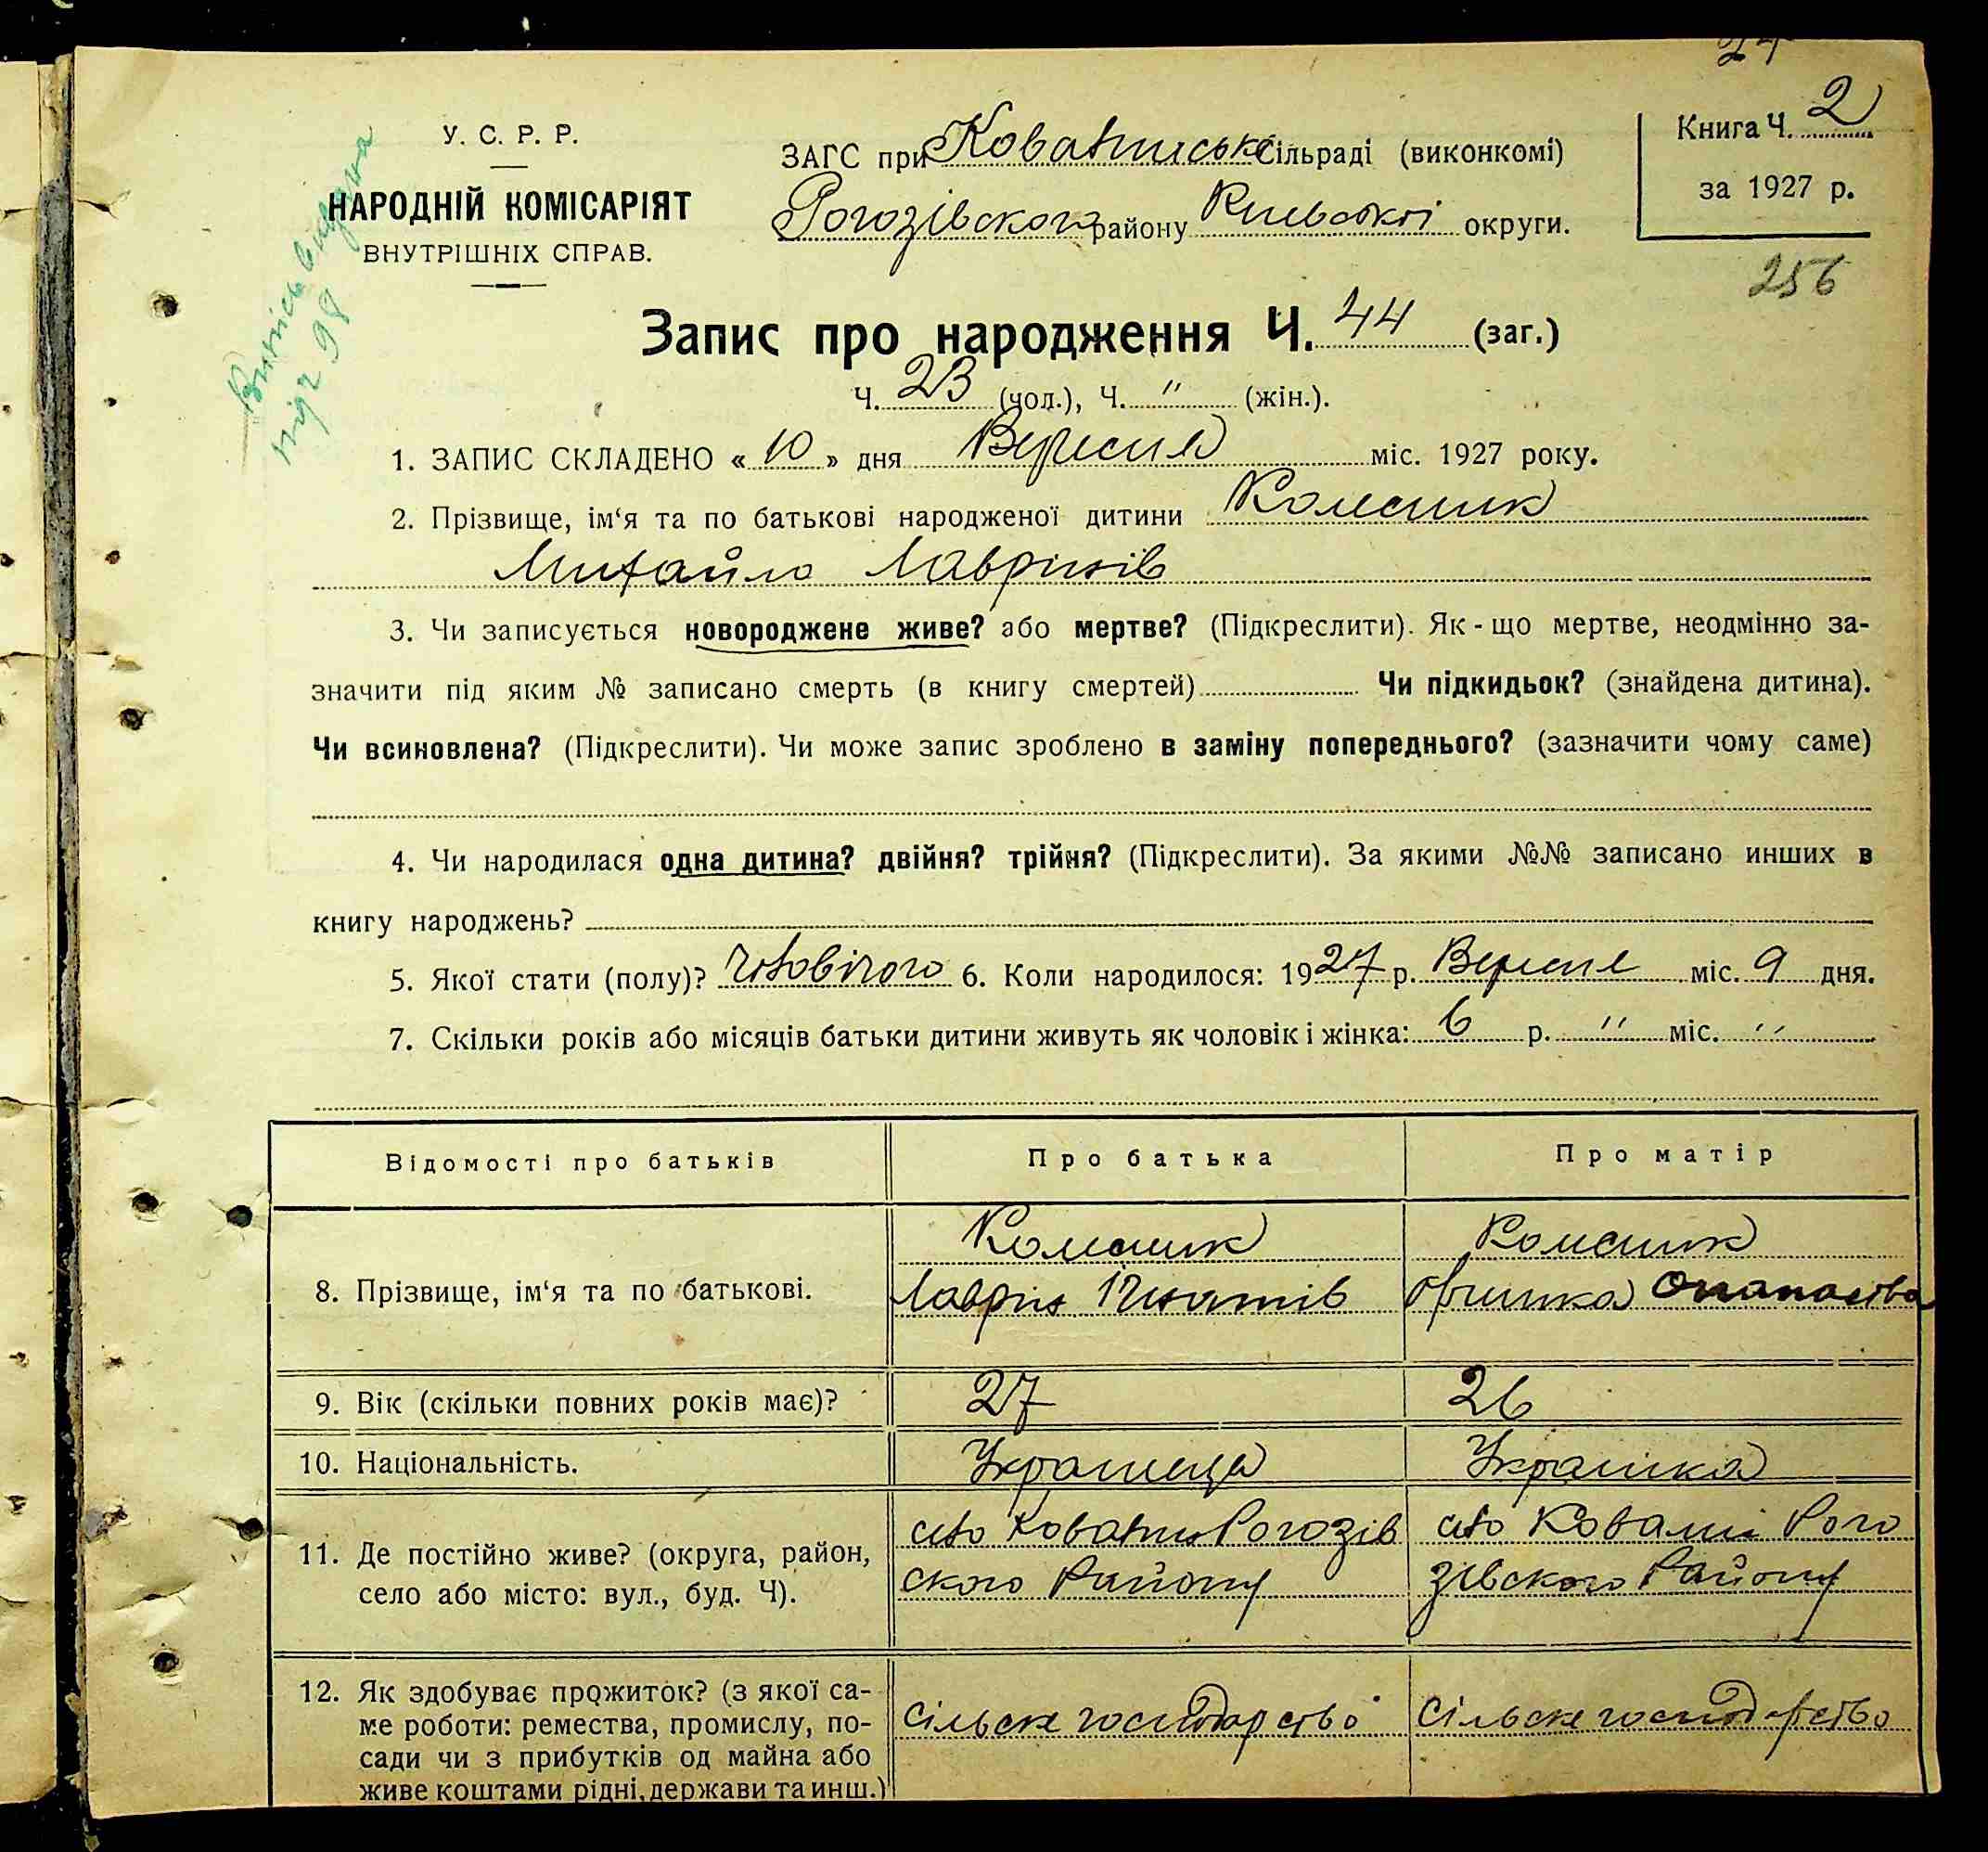 24
У. С. Р. Р.
НАРОДНІЙ КОМІСАРІЯТ
ВНУТРІШНІХ СПРАВ.
Випись видана
під Ч 98
ЗАГС при Ковалинські сільраді (виконкомі)
Рогозівского району Київської округи.
Книга Ч. 2
за 1927 р.
256
Запис про народження Ч. 44 (заг.)
Ч. 23 (чол.), Ч. " (жін.).
1. ЗАПИС СКЛАДЕНО « 10 » дня Вересня міс. 1927 року.
2. Прізвище, ім‘я та по батькові народженої дитини Колесник
Михайло Лаврінів
3. Чи записується новороджене живе? або мертве? (Підкреслити). Як - що мертве, неодмінно за-
значити під яким № записано смерть (в книгу смертей) Чи підкидьок? (знайдена дитина).
Чи всиновлена? (Підкреслити). Чи може запис зроблено в заміну попереднього? (зазначити чому саме)
4. Чи народилася одна дитина? двійня? трійня? (Підкреслити). За якими №№ записано инших в
книгу народжень?
5. Якої стати (полу)? чоловічого 6. Коли народилося: 1927 р. Вересня міс. 9 дня.
7. Скільки років або місяців батьки дитини живуть як чоловік і жінка: 6 р. " міс. "
Відомості про батьків Про батька Про матір
8. Прізвище, ім‘я та по батькові.
Колесник
Лаврін Ігнатів
Колесник
Оришка Опанасова
9. Вік (скільки повних років має)? 27 26
10. Національність. Українець Українка
11. Де постійно живе? (округа, район,
село або місто: вул., буд. Ч).
село Ковалин Рогозів
ского Району
село Ковалині Рого
зівского Району
12. Як здобуває прожиток? (з якої са-
ме роботи: ремества, промислу, по-
сади чи з прибутків од майна або
живе коштами рідні, держави та инш.)
Сільске господарство
Сільске господарство